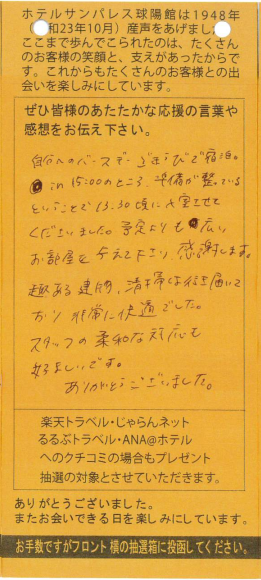 ホテルサンパレス球陽館は1948年
(昭和23年10月)産声をあげました
ここまで歩んでこられたのは、たくさん
のお客様の笑顔と、支えがあったからで
す。これからもたくさんのお客様との出
会いを楽しみにしています。
ぜひ皆様のあたたかな応援の言葉や
感想をお伝え下さい。
自分へのバースデーごほうびで宿泊。
in 15:00のところ、準備が整っている
ということで13:30頃に入室させて
くださいました。予定よりも広い
お部屋を与えて下さり、感謝します。
趣ある建物、清掃も行き届いて
おり非常に快適でした。
スタッフの柔和な対応も
好ましいです。
ありがとうございました。
楽天トラベル・じゃらんネット
るるぶトラベル・ANA@ホテル
へのクチコミの場合もプレゼント
抽選の対象とさせていただきます。
ありがとうございました。
またお会いできる日を楽しみにしています。
お手数ですがフロント横の抽選箱に投函してください。